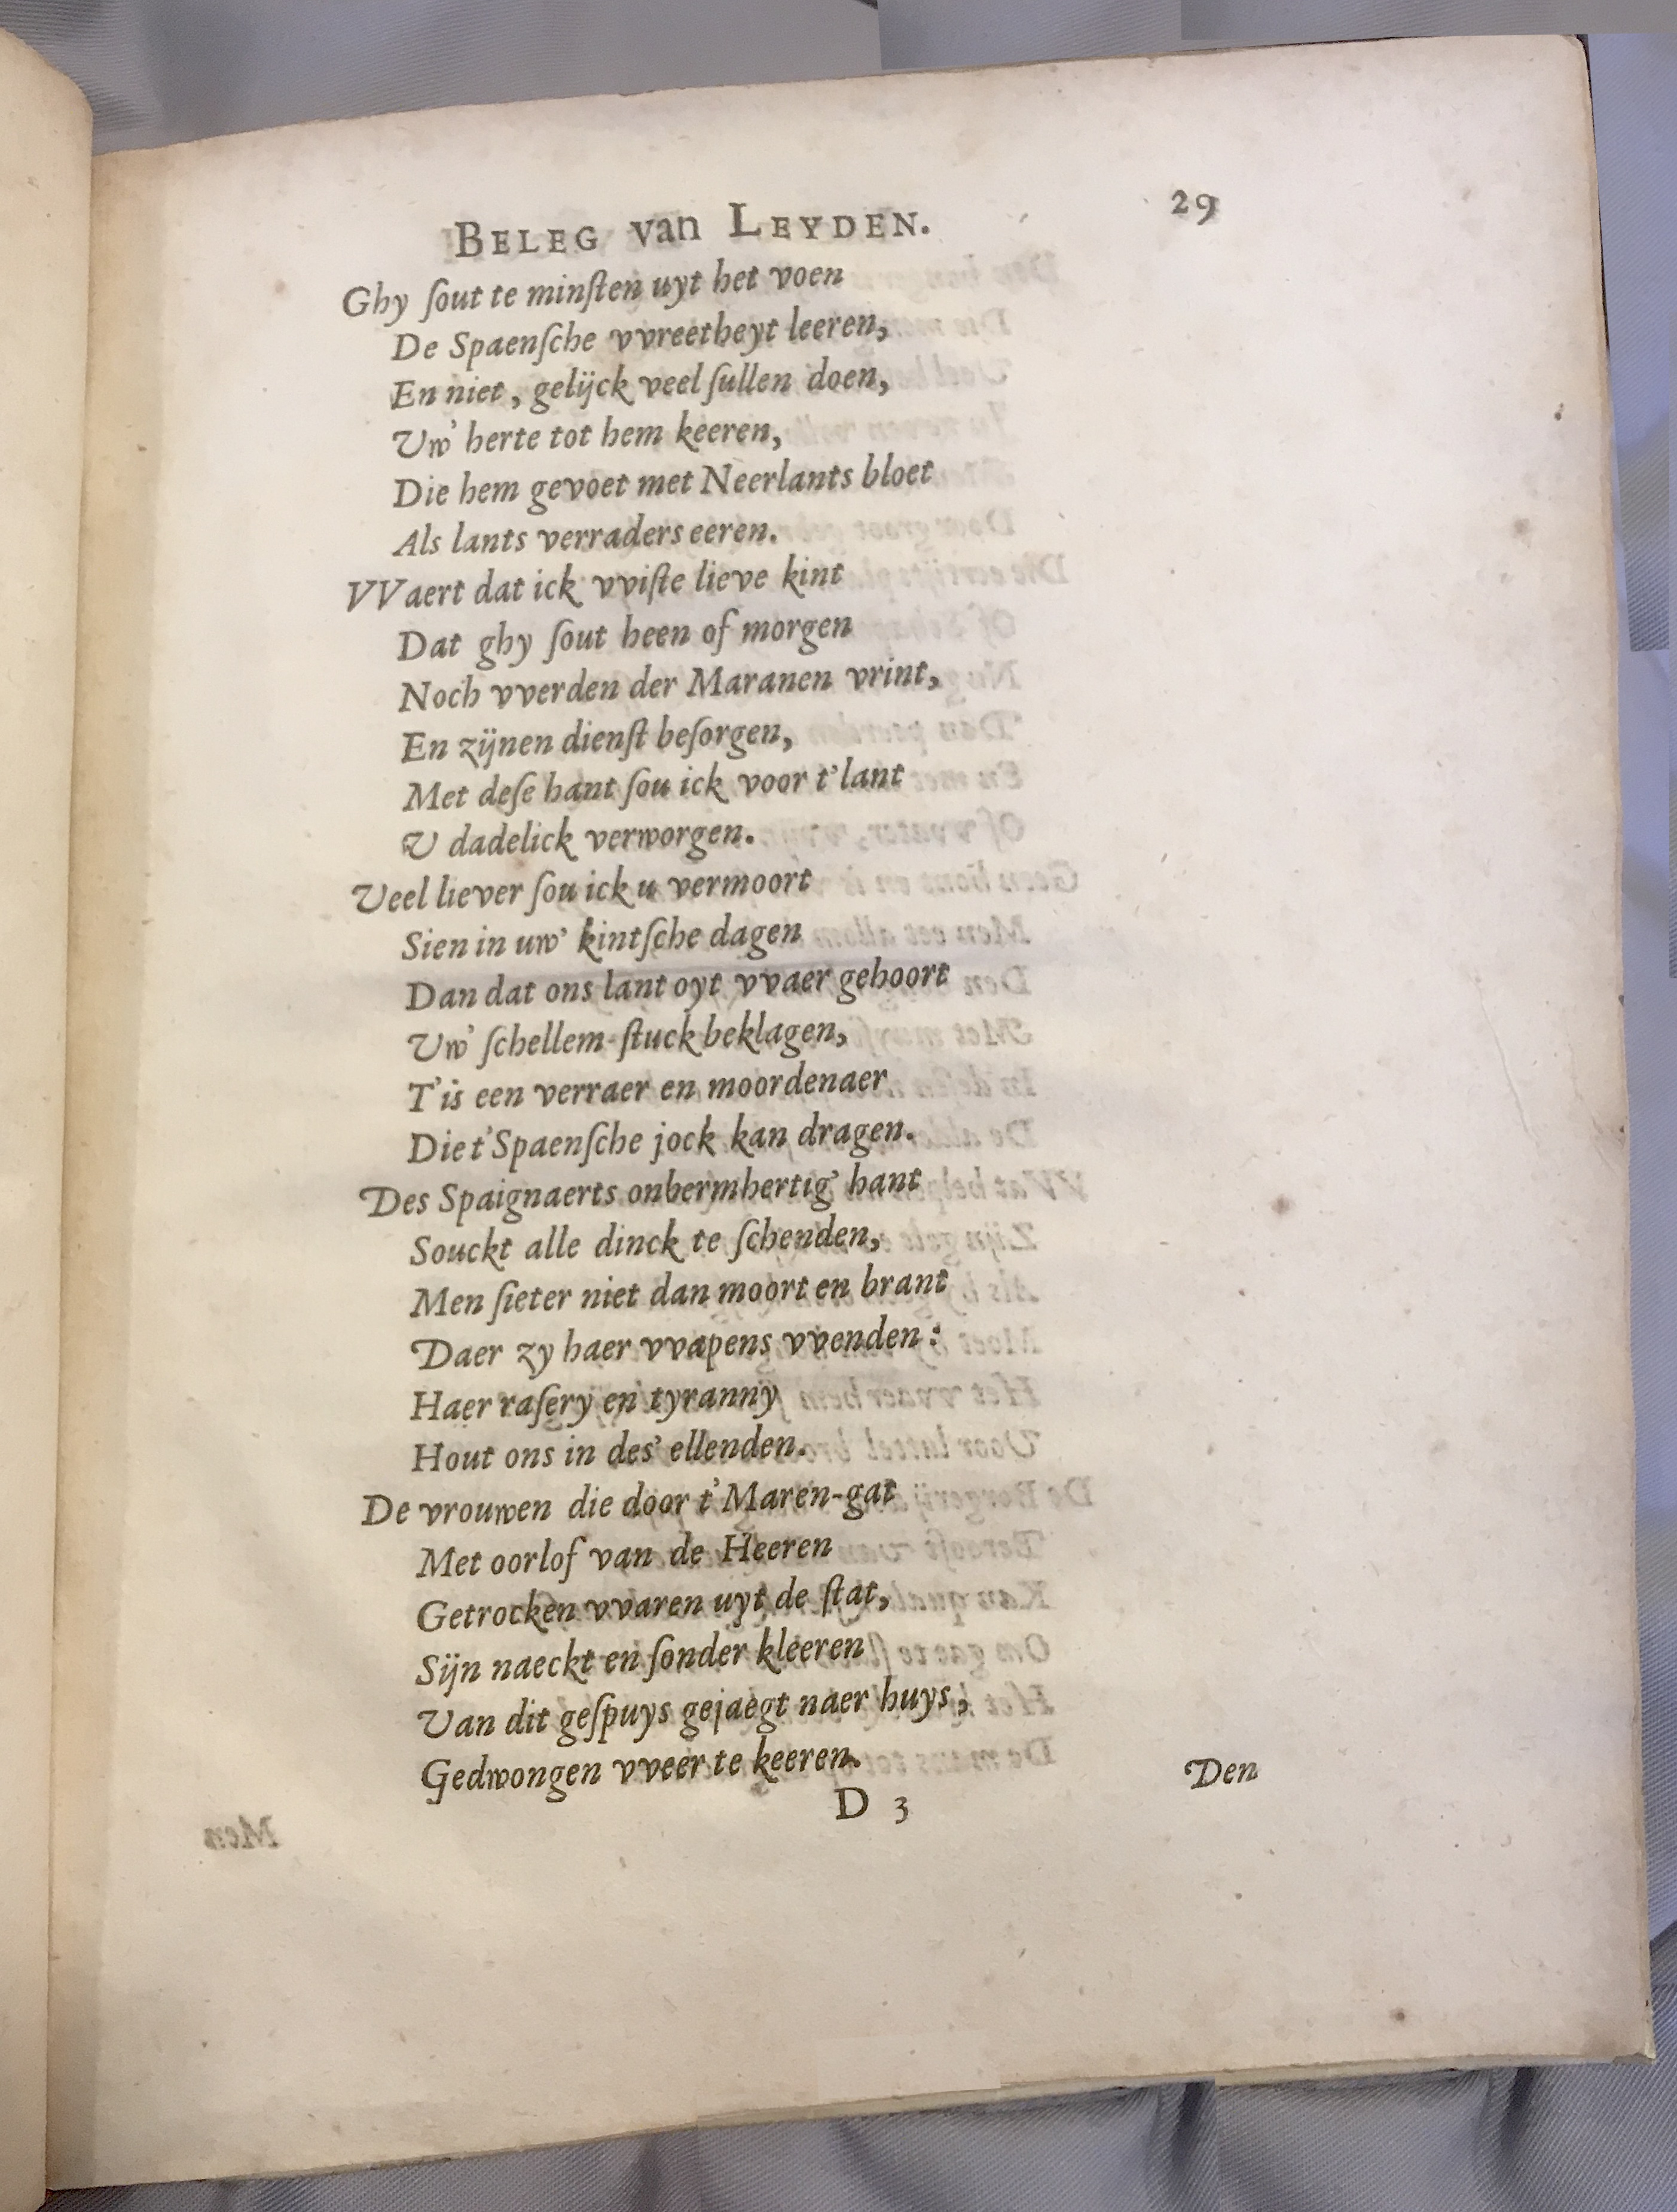 BELEG van LEYDEN. 29
Ghy ſout te minſten uyt het voen
De Spaenſche vvreetheyt leeren,
En niet, gelijck veel ſullen doen,
Uw' herte tot hem keeren,
Die hem gevoet met Neerlants bloet
Als lants verraders eeren.
VVaert dat ick vviſte lieve kint
Dat ghy ſout heen of morgen
Noch vverden der Maranen vrint,
En zijnen dienſt beſorgen,
Met deſe hant ſou ick voor t'lant
U dadelick verworgen.
Veel liever ſou ick u vermoort
Sien in uw' kintſche dagen
Dan dat ons lant oyt vvaer gehoort
Uw' ſchellem-ſtuck beklagen,
T'is een verraer en moordenaer
Die t'Spaenſche jock kan dragen.
Des Spaignaerts onbermhertig' hant
Souckt alle dinck te ſchenden,
Men ſieter niet dan moort en brant
Daer zy haer vvapens vvenden:
Haer raſery en tyranny
Hout ons in des' ellenden.
De vrouwen die door t'Maren-gat
Met oorlof van de Heeren
Getrocken vvaren uyt de ſtat,
Sijn naeckt en ſonder kleeren
Van dit geſpuys gejaegt naer huys,
Gedwongen vveer te keeren.
D 3 Den